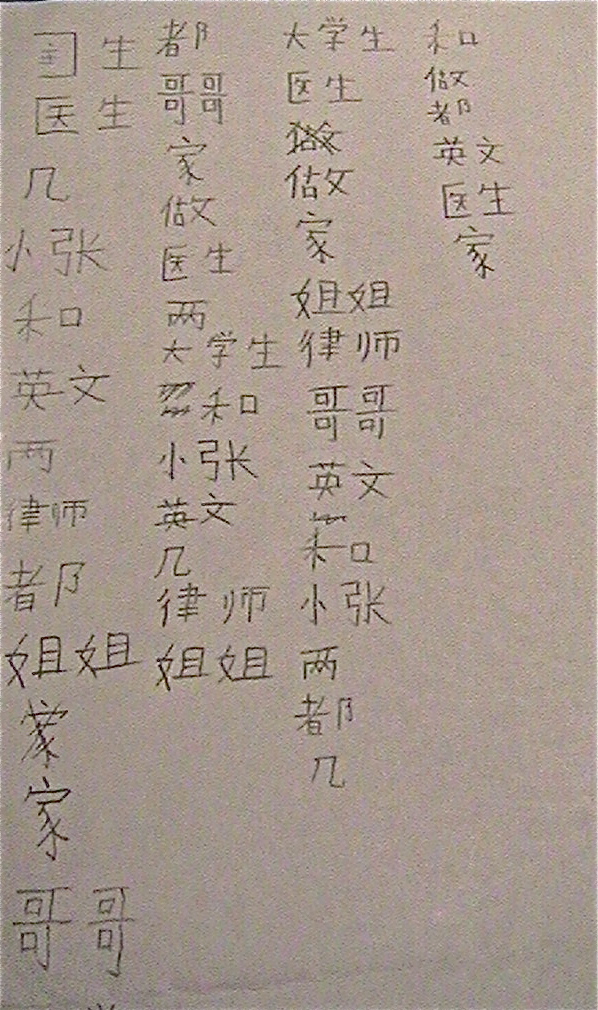 生
医生
几
小张
和
英文
两
律师
都
姐姐
家
哥哥
都
哥哥
家
做
医生
两
大学生
和
小张
英文
几
律师
姐姐
大学生
医生
做
家
姐姐
律师
哥哥
英文
和
小张
两
都
几
和
做
都
英文
医生
家